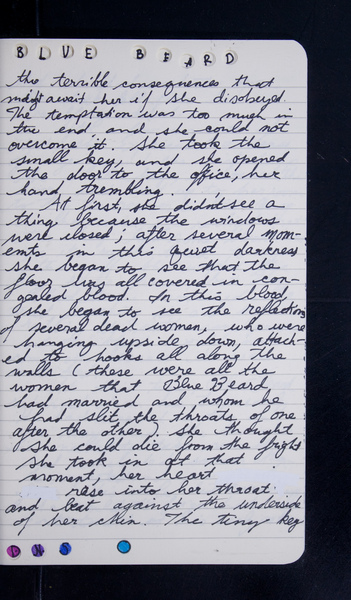 BLUE BEARD
the terrible consequences that
might await her if she disobeyed.
The temptation was too much in
the end, and she could not
overcome it. She took the
small key, and she opened
the door to the office, her
hand trembling.
At first, she didnt see a
thing because the windows
were closed; after several mom-
ents in this quiet darkness
she began to see that the
floor was all covered in con-
gealed blood. In this blood,
she began to see the reflection
of several dead women, who were
hanging upside down, attach-
ed to hooks all along the
walls (these were all the
women that Blue Beard
had married and whom he
had slit the throats of one
after the other) She thought
she could die from the fright
she took in at that
moment, her heart
rose into her throat
and beat against the underside
of her chin. The tiny key